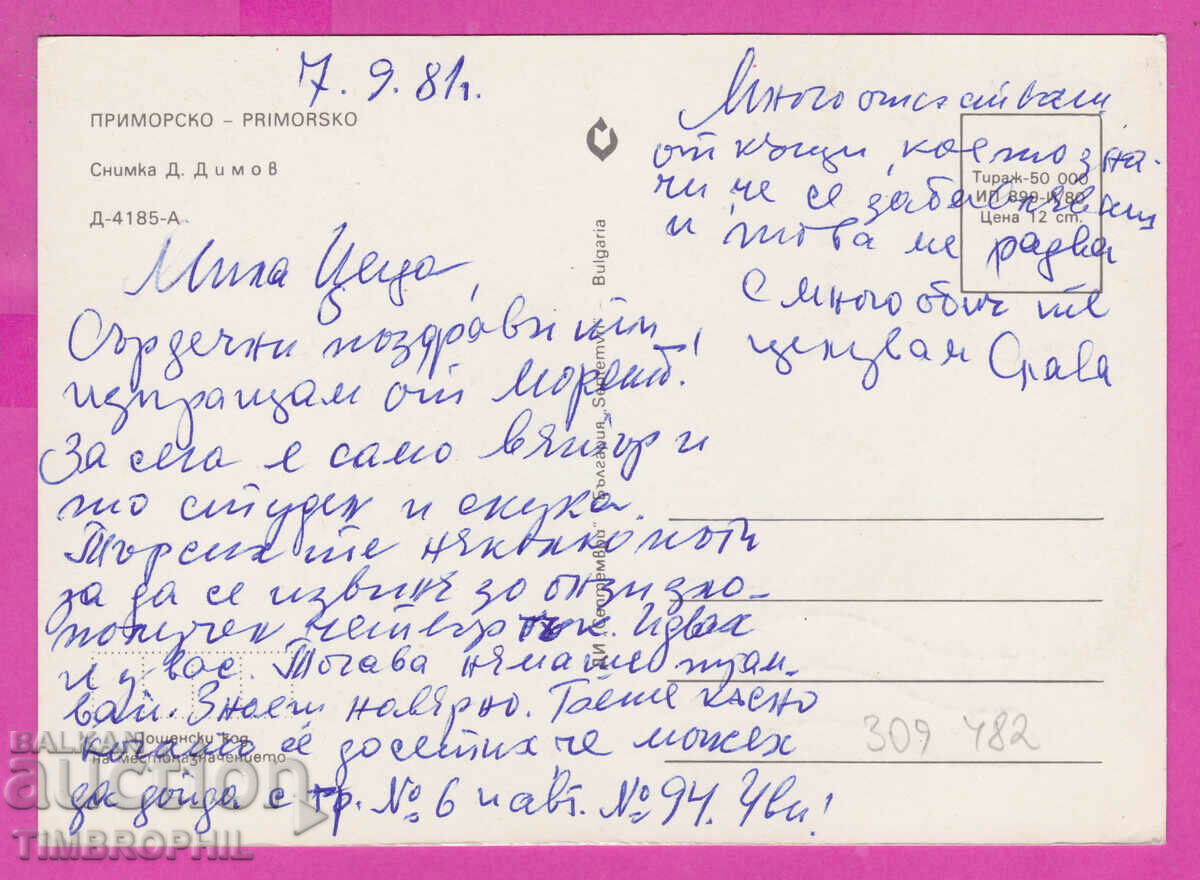 7.9.81г.
ПРИМОРСКО – PRIMORSKO
Снимка Д. Димов
Д-4185-А
Мила Цеца,
Сърдечни поздрави ти
изпращам от морето!
За сега е само вятър и
то студен и скука.
Търсих те няколко пъти
за да се извиня за онзи зло-
получен четвъртък. Идвах
и у вас. Тогава нямаше трам-
вай. Знаеш навярно. Беше късно
когато се досетих че можех
да дойда с тр. № 6 и авт. № 94. Уви!
Много отсъстваш
от къщи, което зна-
чи че се забавляваш
и това ме радва
С много обич те
целувам Слава
Тираж-50 000
ИП 899-И/80
Цена 12 ст.
ДИ „Септември“ – България „Septemvri“ – Bulgaria
Пощенски код
на местоназначението
309 482
BALKAN
auction
TIMBROPHIL